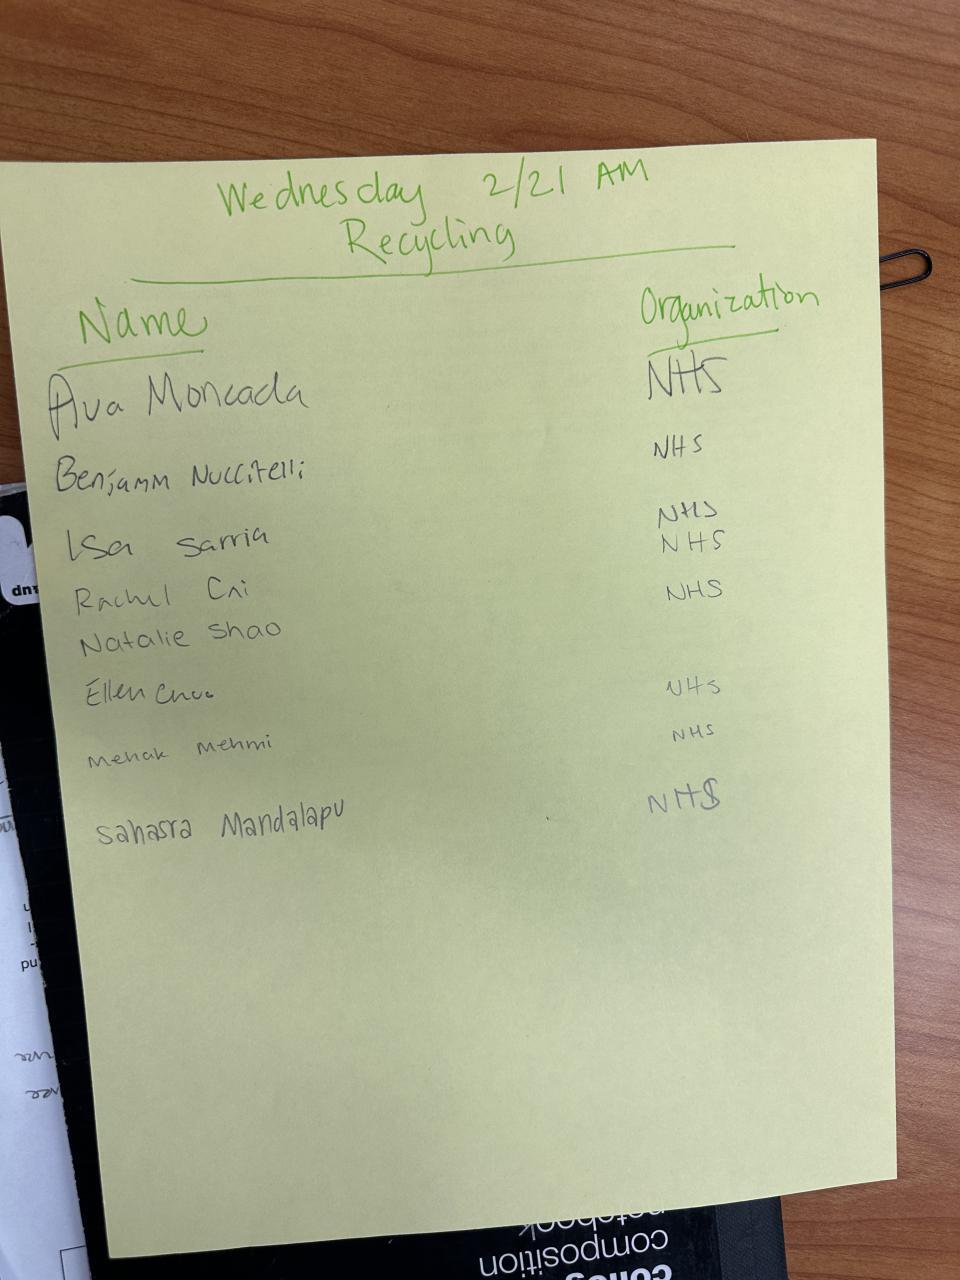 Wednesday 2/21 AM
Recycling
Name Organization
Ava Moncada NHS
Benjamin Nuccitelli NHS
Isa Sarria NHS
Rachel Cai NHS
Natalie Shao NHS
Ellen NHS
Mehak Mehmi NHS
Sahasra Mandalapu NHS
composition
notebook